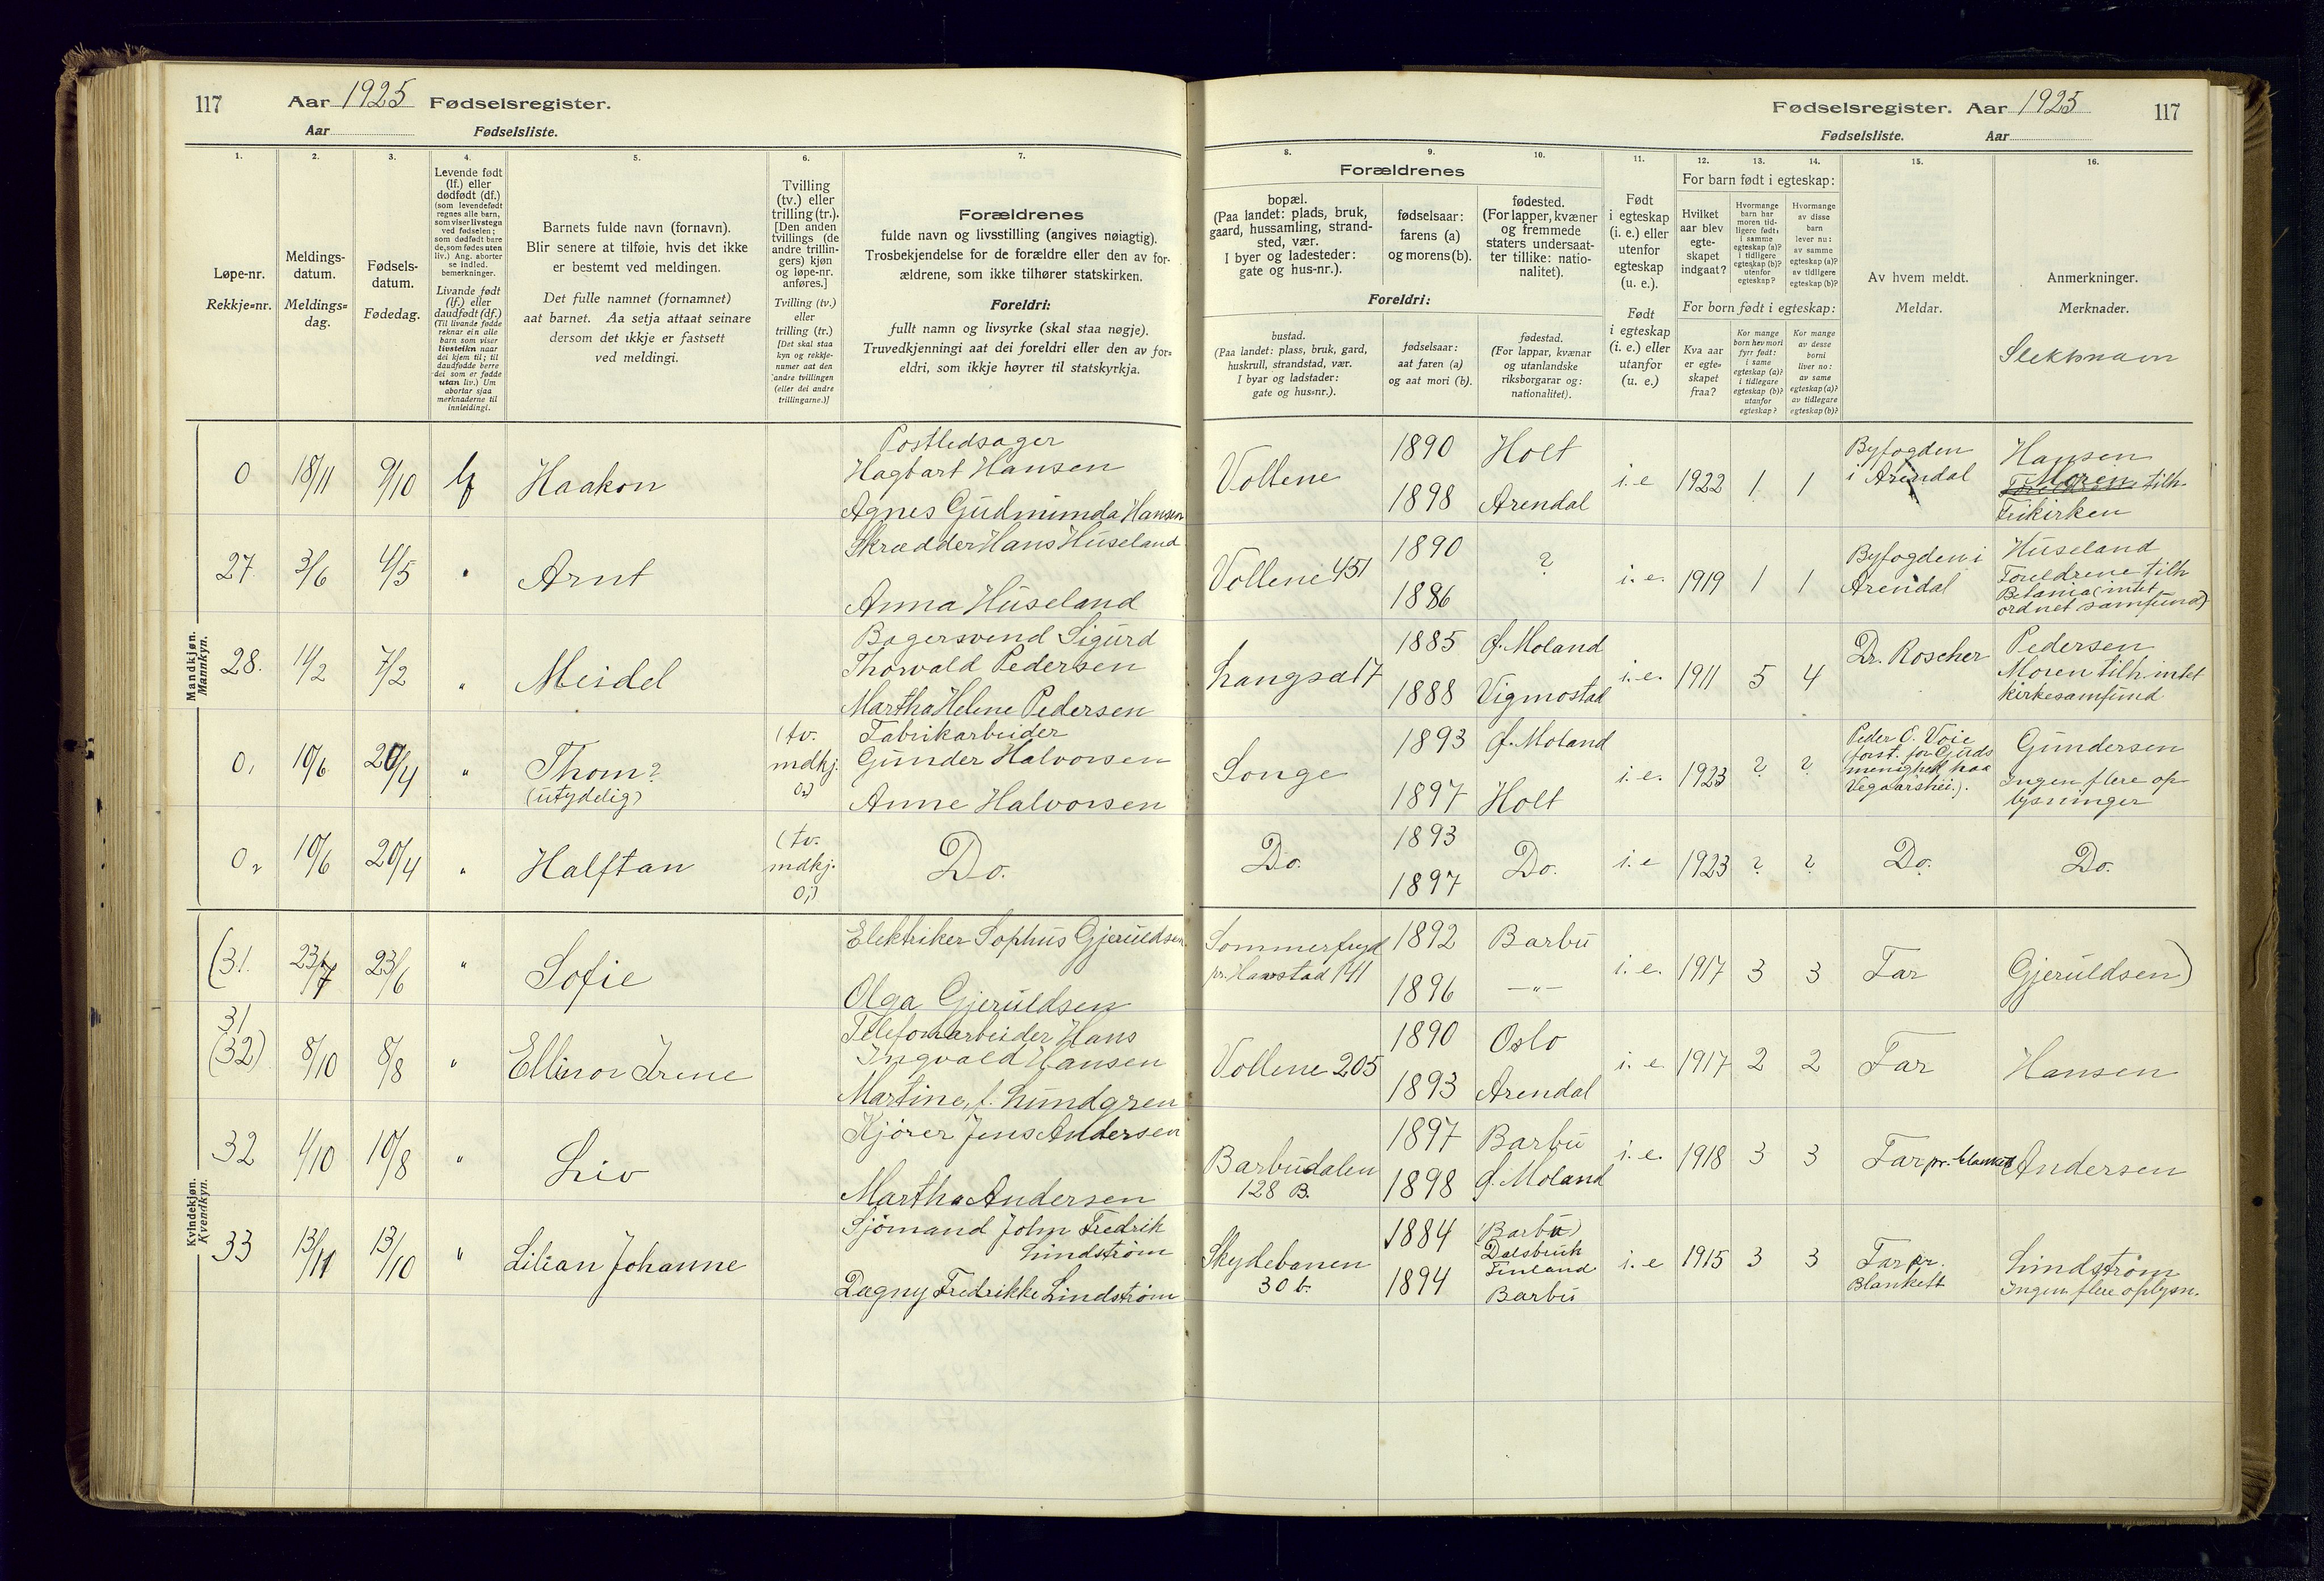 117 Aar 1925 Fødselsregister.
Aar Fødselsliste.
Fødselsregister. Aar 1925 117
Fødselsliste. Aar
1. 2. 3. 4. 5. 6. 7.
Løpe-nr.
Rekkje=nr.
Meldings-
datum.
Meldings=
dag.
Fødsels-
datum.
Fødedag.
Levende født
(lf.) eller
dødfødt (df.)
(som levendefødt
regnes alle barn,
som viser livstegn
ved fødselen;
som dødfødt bare
de, som fødes uten
liv.) Ang. aborter
se indled.
bemerkninger.
Livande født
(lf.) eller
daudfødt (df.)
(Til livande fødde
reknar ein alle
barn som viser
livsteikn naar
dei kjem til; til
daudfødde berre
dei som er fødde
utan liv.) Um
abortar sjaa
merknaderne til
innleidingi.
Barnets fulde navn (fornavn).
Blir senere at tilføie, hvis det ikke
er bestemt ved meldingen.
Det fulle namnet (fornamnet)
aat barnet. Aa setja attaat seinare
dersom det ikkje er fastsett
ved meldingi.
Tvilling
(tv.) eller
trilling (tr.).
[Den anden
tvillings (de
andre trillin-
gers) kjøn
og løpe-nr.
anføres.]
Tvilling (tv.)
eller
trilling (tr.)
[Det skal staa
kyn og rekkje-
numer aat den
andre tvillingen
(eller dei andre
trillingarne.)]
Forældrenes
fulde navn og livsstilling (angives nøiagtig).
Trosbekjendelse for de forældre eller den av for-
ældrene, som ikke tilhører statskirken.
Foreldri:
fullt namn og livsyrke (skal staa nøgje).
Truvedkjenningi aat dei foreldri eller den av for-
eldri, som ikkje høyrer til statskyrkja.
8. 9. 10. 11. 12. 13. 14. 15. 16.
Forældrenes
bopæl.
(Paa landet: plads, bruk,
gaard, hussamling, strand-
sted, vær.
I byer og ladesteder:
gate og hus-nr.).
fødselsaar:
farens (a)
og morens (b).
fødested.
(For lapper, kvæner
og fremmede
staters undersaat-
ter tillike: natio-
nalitet).
Foreldri:
bustad.
(Paa landet: plass, bruk, gard,
huskrull, strandstad, vær.
I byar og ladstader:
gate og hus=nr.).
fødselsaar:
aat faren (a)
og aat mori (b).
fødestad.
(For lappar, kvænar
og utanlandske
riksborgarar og:
nationalitet).
Født
i egteskap
(i. e.) eller
utenfor
egteskap
(u. e.).
Født
i egteskap
(i. e.) eller
utanfor
(u. e.)
For barn født i egteskap:
Hvilket
aar blev
egte-
skapet
indgaat?
Hvormange
barn har
moren tid-
ligere født:
i samme
egteskap (a)?
i tidligere
egteskap (b)?
utenfor
egteskap?
Hvormange
av disse
barn
lever nu:
av samme
egteskap (a)?
av tidligere
egteskap (b)?
For born født i egteskap:
Kva aar
er egte-
skapet
fraa?
Kor mange
born hev mori
fyrr født:
i same
egteskap (a)?
i tidlegare
egteskap (b)?
utanfor
egteskap?
Kor mange
av desse
borni
liver no:
av same
egteskap (a)?
av tidlegare
egteskap (b)?
Av hvem meldt.
Meldar.
Anmerkninger.
Merknader.
Slektsnavn
Mandkjøn.
Mannkyn.
0 18/11 9/10 lf Haakon
Postledsager
Hagbart Hansen
Agnes Gudmunda Hansen
Vollene 1890 1898 Holt Arendal i. e 1922 1 1
Byfogden
i Arendal
Hansen
Moren tilh.
Frikirken
27. 3/6 4/5 " Arnt
Skrædder Hans Huseland
Anna Huseland
Vollene 451 1890 1886 ? i. e. 1919 1 1
Byfogden i
Arendal
Huseland
Foreldrene tilh
Betania (intet
ordnet samfund)
28. 14/2 7/2 " Meidel
Bagersvend Sigurd
Thorvald Pedersen
Martha Helene Pedersen
Langsæ 17 1885 1888 Ø. Moland Vigmostad i. e. 1911 5 4
Dr. Roscher
Pedersen
Moren tilh. intet
kirkesamfund
0, 10/6 20/4 " Thom?
(utydelig)
(tv.
mdkj.
02)
Fabrikarbeider
Gunder Halvorsen
Anne Halvorsen
Songe 1893 1897 Ø. Moland Holt i. e. 1923 ? ?
Peder O. Voie
forst. for Guds
menighet paa
Vegaarshei.).
Gundersen
Ingen flere op
lysninger
02 10/6 20/4 " Halftan
(tv.
mdkj.
0,)
Do.
Do. 1893 1897 Do. i. e 1923 ? ? Do. Do.
Kvindekjøn.
Kvendkyn.
(31. 23/7 23/6 " Sofie
Elektriker Sophus Gjeruldsen
Olga Gjeruldsen
Sommerfryd
pr. Harstad 141
1892 1896 Barbu —"— i. e. 1917 3 3 Far Gjeruldsen)
31
(32) 8/10 8/8 " Ellinor Irene
Telefonarbeider Hans
Ingvald Hansen
Martine, f. Lundgren
Vollene 205 1890 1893 Oslo Arendal i. e. 1917 2 2 Far Hansen
32 1/10 10/8 " Liv
Kjører Jens Andersen
Martha Andersen
Barbudalen
128 B.
1897 1898 Barbu Ø. Moland i. e. 1918 3 3 Far pr. blanket Andersen
33 13/11 13/10 " Lilian Johanne
Sjømand John Fredrik
Lindstrøm
Dagny Fredrikke Lindstrøm
Skydebanen
30 b.
1884 1894
(Barbu)
Dalsbruk
Finland
Barbu
i. e 1915 3 3
Far pr.
Blankett
Lindstrøm
Ingen flere oplysn.